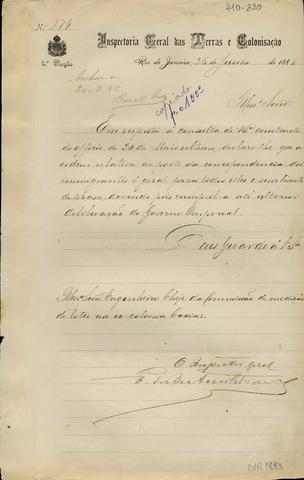 410-839
Nº 174
Inspectoria Geral das Terras e Colonisação
2ª Secção
Rio de Janeiro, 26 de Junho de 1885
Archive-se
20-7-85
copiado
p. 190
Illmo. Snr.
Em resposta á consulta de VSª constante
do officio de 23 de Maio ultimo, declaro-lhe que a
ordem relativa ao porte da correspondencia dos
immigrantes é geral para todos elles e sem limite
de praso, devendo pois cumpril-a até ulterior
deliberação do Governo Imperial.
Deus Guarde á V.Sª
Illmo Snr. Engenheiro Chefe da Commissão de medição
de lotes na ex colonia Caxias.
O Inspector geral
F. de
DIR 1883